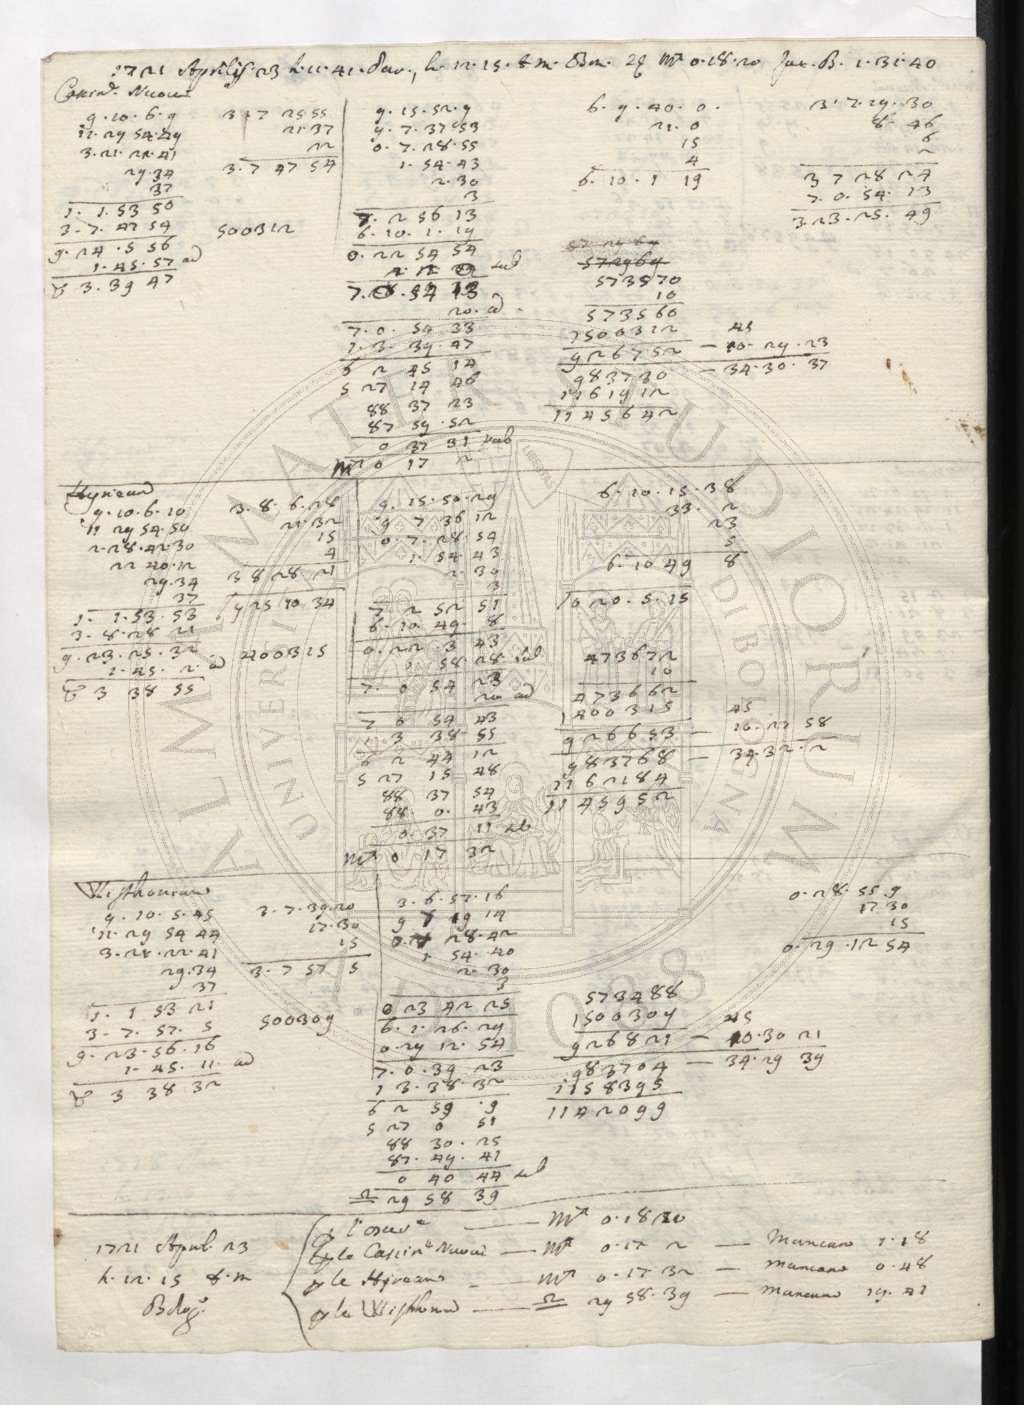 1721 Aprilis 23 h. 11. 41. h. 12. 15. 8. m. 0. 18. 20 B. 1. 31. 40
9. 10. 6. 9
11. 29 54. 49
3. 21. 22. 41
29. 34
37
1. 1. 53 50
3. 7. 47 54
9. 24. 5 56
1. 45. 57 ad
♉ 3. 39 47
3 17 25 55
21. 37
22
3. 7 47 54
500312
9. 15. 52. 9
9. 7. 37 53
0. 7. 28. 55
1. 54. 43
2. 30
3
7. 2 56 13
6. 10. 1. 19
0. 22 54 54
7. 0. 54 13
20. ad
7. 0. 54 33
1. 3. 39. 47
6 2 45 14
5 27 14 46
88 37 23
87 59. 52
0 37 31 sub
♏ 0 17 2
6. 9. 40. 0.
21. 0
15
4
6. 10. 1 19
573570
10
573560
1500312 45
926752 — 10. 29. 23
983730 — 34. 30. 37
1161912
1145642
3. 7. 19. 30
8. 46
6
2
3 7 28 24
7. 0. 54. 13
3. 23. 25. 49
9. 10. 6. 10
11 29 54. 50
2. 28. 42. 30
22 40. 12
29. 34
37
1. 1. 53. 53
3. 8. 28 21
9. 23. 25. 32
1. 45. 2. ad
♉ 3 38 55
3. 8. 6. 28
21. 32
15
4
3 8 28 21
9 25 10 34
400315
9. 15. 50. 29
9 7 36 12
0. 7. 28. 54
1. 54. 43
2. 30
3
7 2 52 51
6. 10. 49. 8
0. 22. 3 43
1. 58. 28 sub
7. 0 54 23
20 ad
7 0 54 43
1 3 38. 55
6 2 44 12
5 27 15 48
88 37 54
88 0. 43
0. 37 11 sub
♏ 0 17 32
6. 10. 15. 38
33. 2
23
5
6. 10 49 8
10 20. 5. 15
473672
10
473662
1400315 45
926653 — 10. 27 58
983768 — 34. 32. 2
1162184
1145952
9. 10. 5. 45
11. 29 54 44
3. 21. 22. 41
29. 34
37
1. 1 53 21
3. 7. 57. 5
9. 23. 56. 16
1. 45. 11. ad
♉ 3 38 32
3. 7. 39. 20
17. 30
15
3. 7 57 5
500309
3. 6. 57. 16
9 7 19 14
0. 7 28. 42
1. 54. 40
2. 30
3
0 23 42 25
6. 1. 26. 29
0. 29 12. 54
7. 0. 39. 23
1 3. 38. 32
6 2 59 9
5 27 0 51
88 30. 25
87. 49. 41
0 40 44 sub
♎ 29 58 39
0. 28. 55. 9
17 30
15
0. 29. 12 54
573488
1500309 45
926821 — 10. 30 21
983704 — 34. 29 39
1158395
1142099
1721 April. 23
h. 12. 15 8. m
— ♏ 0. 18 20
— ♏ 0. 17 2 — Mancano 1. 18
— ♏ 0. 17. 32 — mancano 0. 48
— ♎ 29 58. 39 — mancano 19. 41
ALMA MATER STUDIORUM
UNIVERSITÀ DI BOLOGNA
A.D. 1088
LIBERTAS